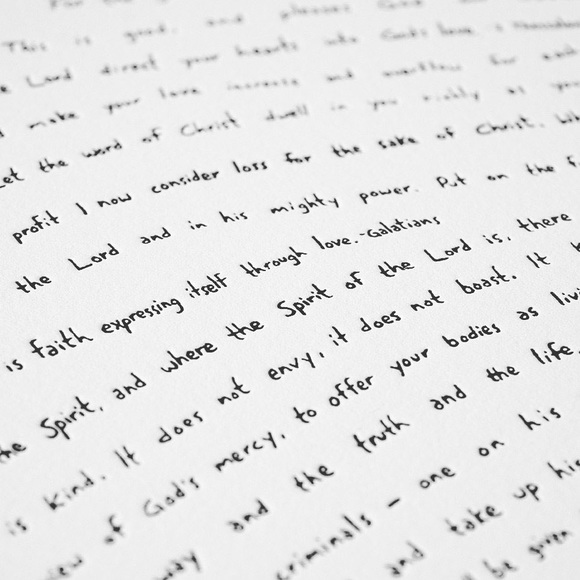 For the
This is good, and pleases God
Lord direct your hearts into God's love
make your love increase and overflow for each
Let the word of Christ dwell in you richly as you
profit I now consider loss for the sake of Christ.
the Lord and in his mighty power. Put on the f
is faith expressing itself through love.-Galatians
the Spirit, and where the Spirit of the Lord is, there
is kind. It does not envy, it does not boast. It
view of God's mercy, to offer your bodies as livi
way and the truth and the life.
criminals – one on his
and take up his
be given